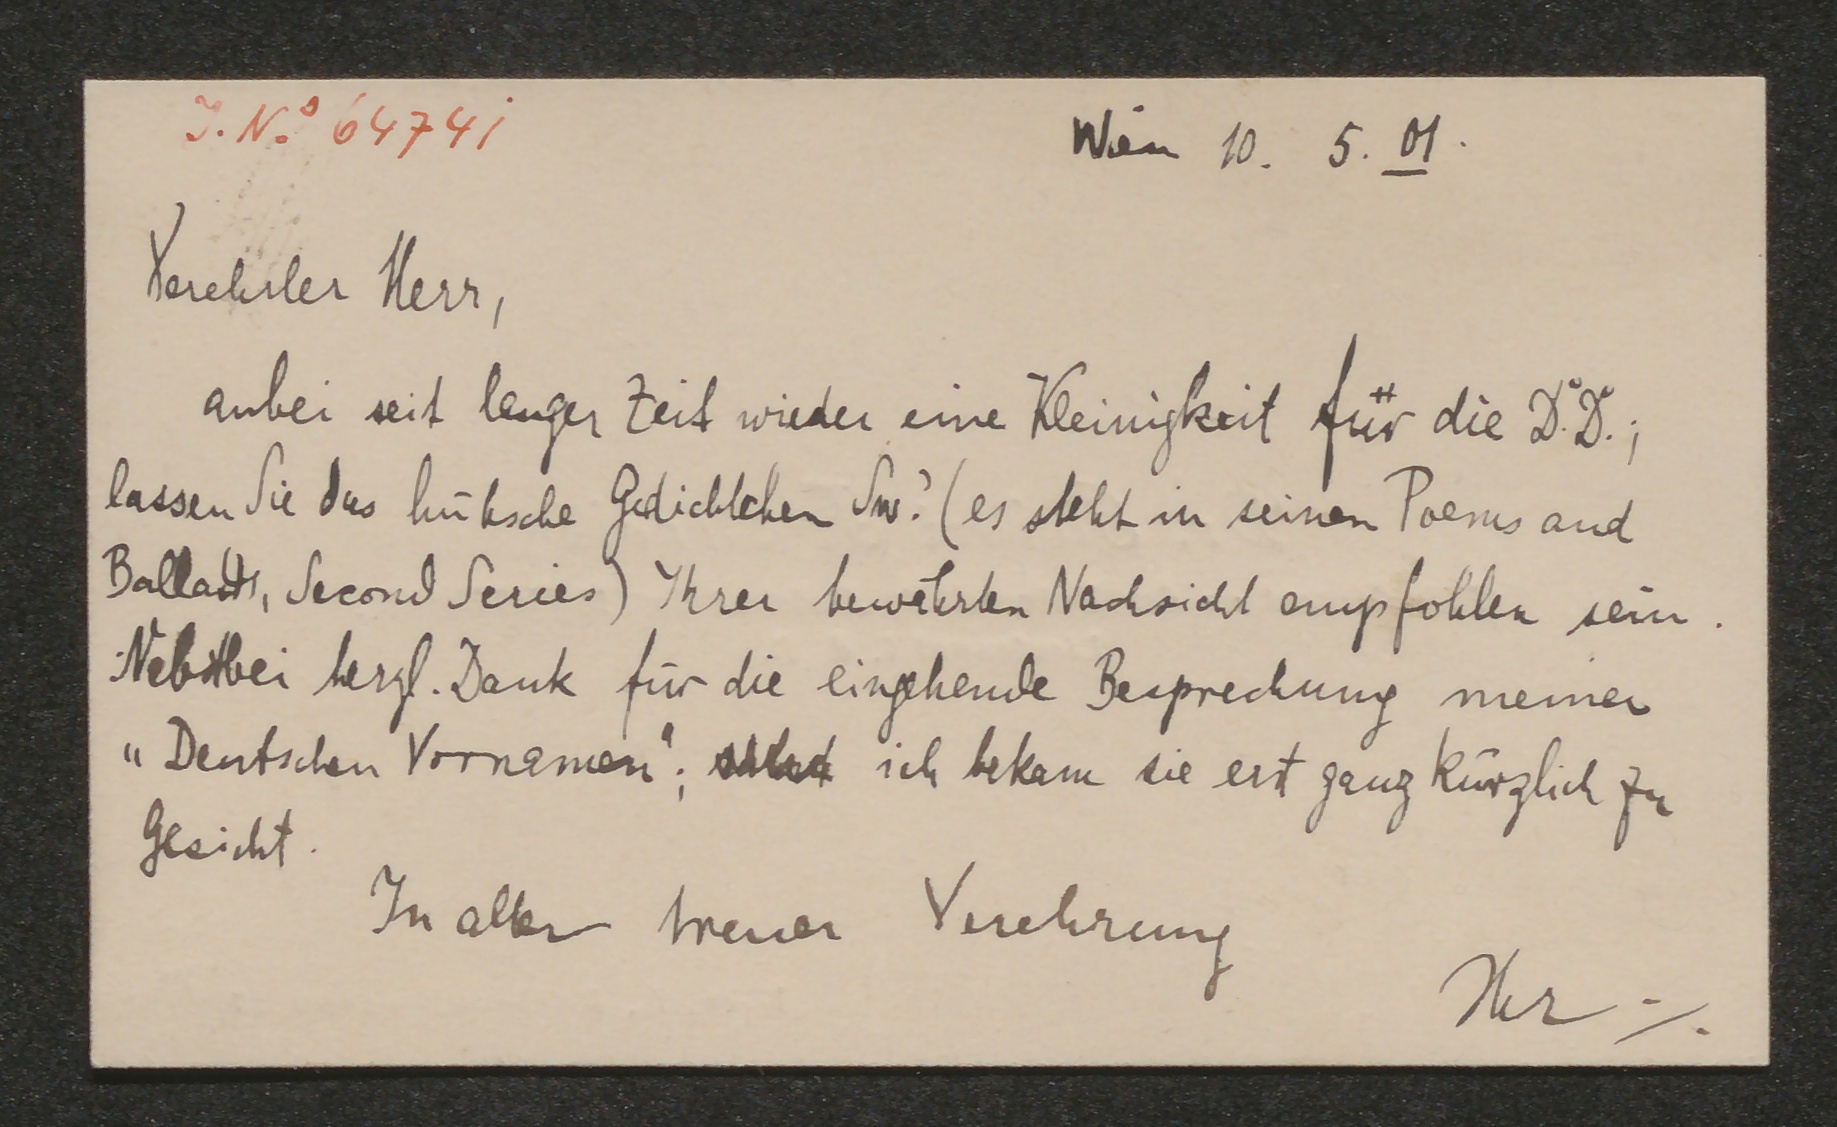 J. No. 64741
Wien 10. 5. 01.
Verehrter Herr,
anbei seit langer Zeit wieder eine Kleinigkeit für die D. D.;
lassen Sie das hübsche Gedichtchen Sw.'s (es steht in seinen Poems and
Ballads, Second Series) Ihrer bewährten Nachsicht empfohlen sein.
Nebstbei herzl. Dank für die eingehende Besprechung meiner
„Deutschen Vornamen"; ich bekam sie erst ganz kürzlich zu
Gesicht.
In alter treuer Verehrung
Ihr